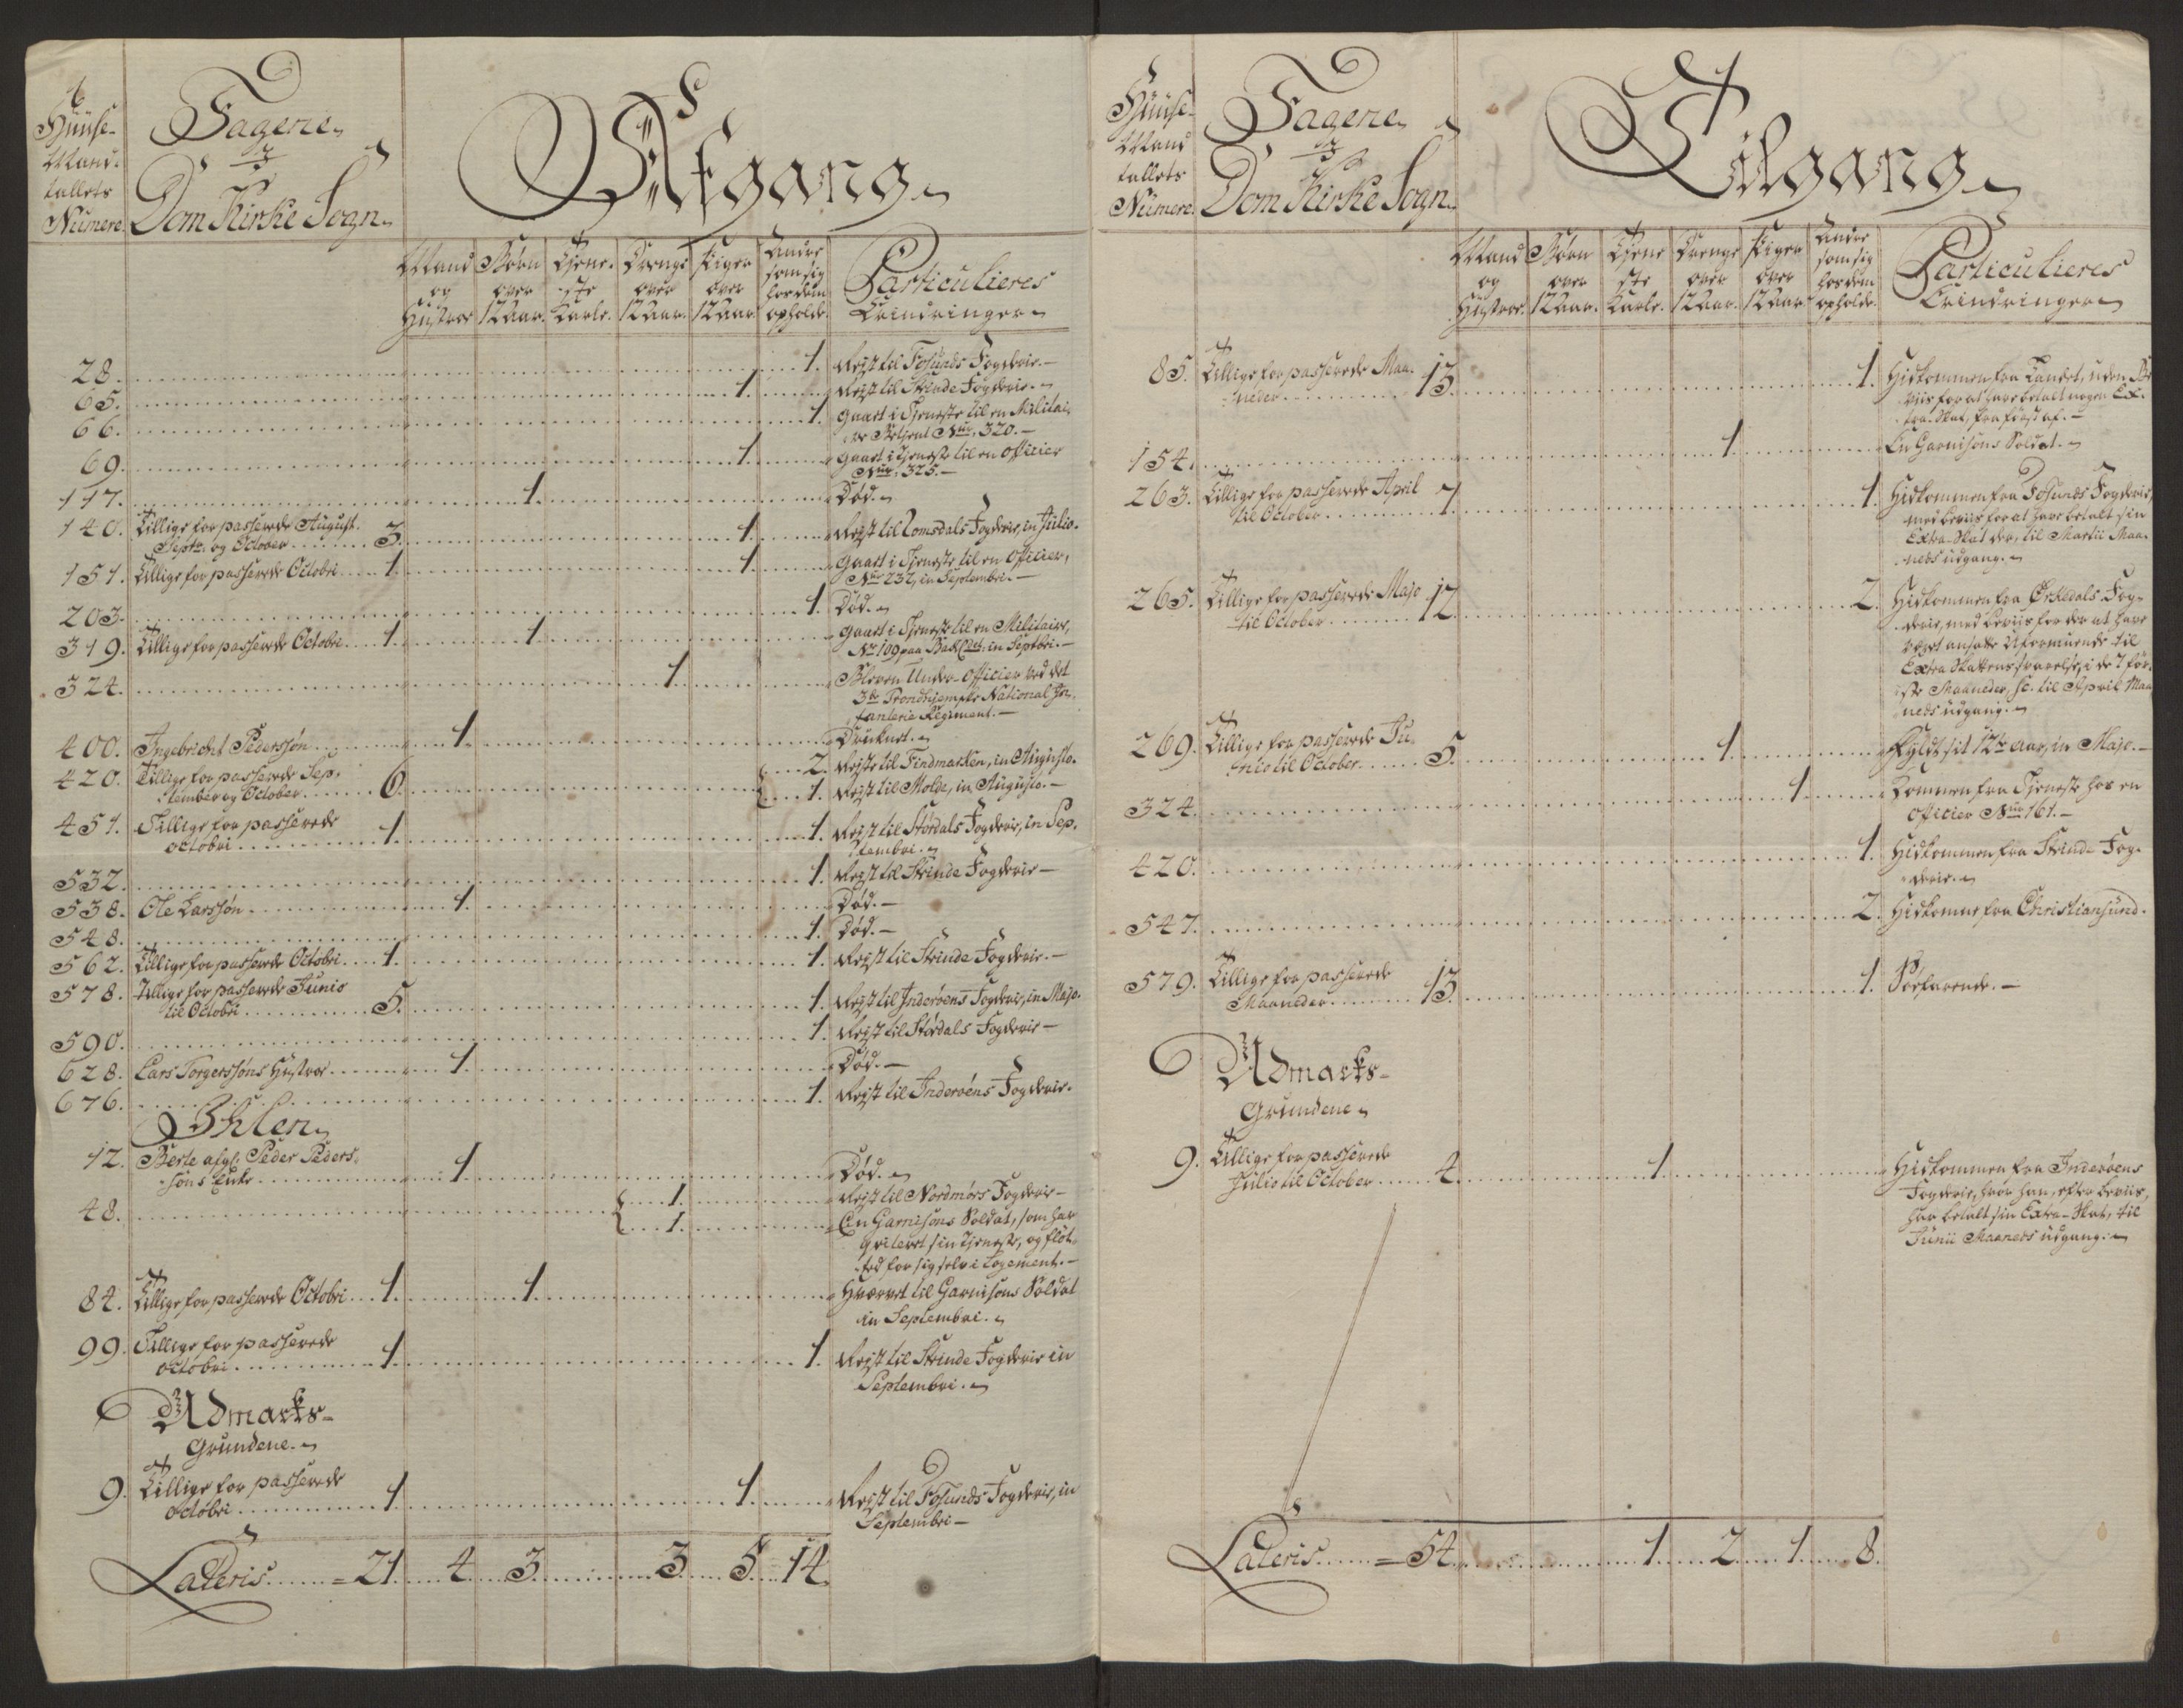 Huuse-
Mand-
tallets
Numere.
Fagene
i
Dom Kirke Sogn.
Afgang
Mand
og
Hustroe
Børn
over
12 Aar.
Tjene-
ste
Karle.
Drenge
over
12 Aar.
Piger
over
12 Aar.
Andre
som sig
hos dem
opholde.
Particulieres
Erindringer
28. 1. Rejst til Fosunds Fogderie.
65. 1. Rejst til Strinde Fogderie.
66. 1. gaaet i Tjeneste til en Militai-
re Betjent No. 320.
69. 1. gaaet i Tjeneste til en Officier
No. 325.
117. 1. Død.
140. Tillige for passerede August.
Septr. og October 3. 1. Rejst til Romsdals Fogderie, in Julio.
151. Tillige for passerede Octobri 1. 1. gaaet i Tjeneste til en Officier,
No. 232, in Septembri.
203. 1. Død.
319. Tillige for passerede Octobri. 1. 1. gaaet i Tjeneste til en Militaire,
No 109 paa in Septbri.
324. 1. Bleven Under-Officier ved det
3de Trondhjemske National In-
fanterie Regiment.
400. Ingebricht Pederssøn 1. Druknet.
420. Tillige for passerede Sep-
tember og October 6. 2. Rejste til Findmarken, in Augusto.
1. Rejst til Molde, in Augusto.
451. Tillige for passerede
octobri 1. 1. Rejst til Størdals Fogderie, in Sep-
tembri.
532. 1. Rejst til Strinde Fogderie
538. Ole Larssøn 1. Død.
548. 1. Død.
562. Tillige for passerede Octobri 1. 1. Rejst til Strinde Fogderie.
578. Tillige for passerede Junio
til Octobri 5. 1. Rejst til Inderøens Fogderie, in Majo.
590. 1. Rejst til Størdals Fogderie
628. Lars Torgerssøns Hustroe 1. Død.
676. 1. Rejst til Inderøens Fogderie.
Ihlen
12. Berte afgl. Peder Peders-
søns Enke 1. Død.
48. 1. Rejst til Nordmørs Fogderie
1. En Garnisons Soldat, som har
qviteret sin Tjeneste, og flyt-
ted for sig selv i Logement.
84. Tillige for passerede Octobri 1. 1. Hvervet til Garnisons Soldat
in Septembri.
99. Tillige for passerede
octobri 1. 1. Rejst til Strinde Fogderie in
Septembri.
Udmarks-
Grundene.
9. Tillige for passerede
octobri 1. 1. Rejst til Fosunds Fogderie, in
Septembri
Lateris = 21. 4. 3. 3. 5. 14.
Huuse-
Mand
tallets
Numere.
Fagene
i
Dom Kirke Sogn.
Tilgang
Mand
og
Hustroe.
Børn
over
12 Aar.
Tjene
ste
Karle.
Drenge
over
12 Aar.
Piger
over
12 Aar
Andre
som sig
hos dem
opholde.
Particulieres
Erindringer
85. Tillige for passerede Maa-
neder 13. 1. Hidkommen fra Landet, uden Be-
viis for at have betalt nogen Ex-
tra-Skat, fra først af.
154. 1. En Garnisons Soldat.
263. Tillige for passerede April
til October 7. 1. Hidkommen fra Fosunds Fogderie,
med beviis for at have betalt sin
Extra-Skat der, til Martii Maa-
neds udgang.
265. Tillige for passerede Majo
til October 12. 2. Hidkommen fra Ørkedals Fog-
derie, med beviis for der at have
været ansatte Uformuende til
Extra Skattens svarelse, i de 7 før-
ste Maaneder, sc. til April Maa
neds udgang.
269. Tillige for passerede Ju-
nio til October 5. 1. Fyldt sit 12te aar, in Majo.
324. 1. Kommen fra Tjeneste hos en
Officier No. 161.
420. 1. Hidkommen fra Strinde Fog-
derie.
547. 2. Hidkomne fra Christiansund.
579. Tillige for passerede
Maaneder 13. 1. Søefarende.
Udmarks-
Grundene
9. Tillige for passerede
Julio til October 4. 1. Hidkommen fra Inderøens
Fogderie, hvor han, efter beviis,
har betalt sin Extra-Skat, til
Junii Maaneds udgang.
Lateris = 54. 1. 2. 1. 8.